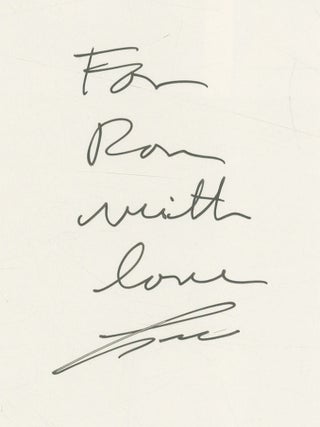 For
Ron
with
love